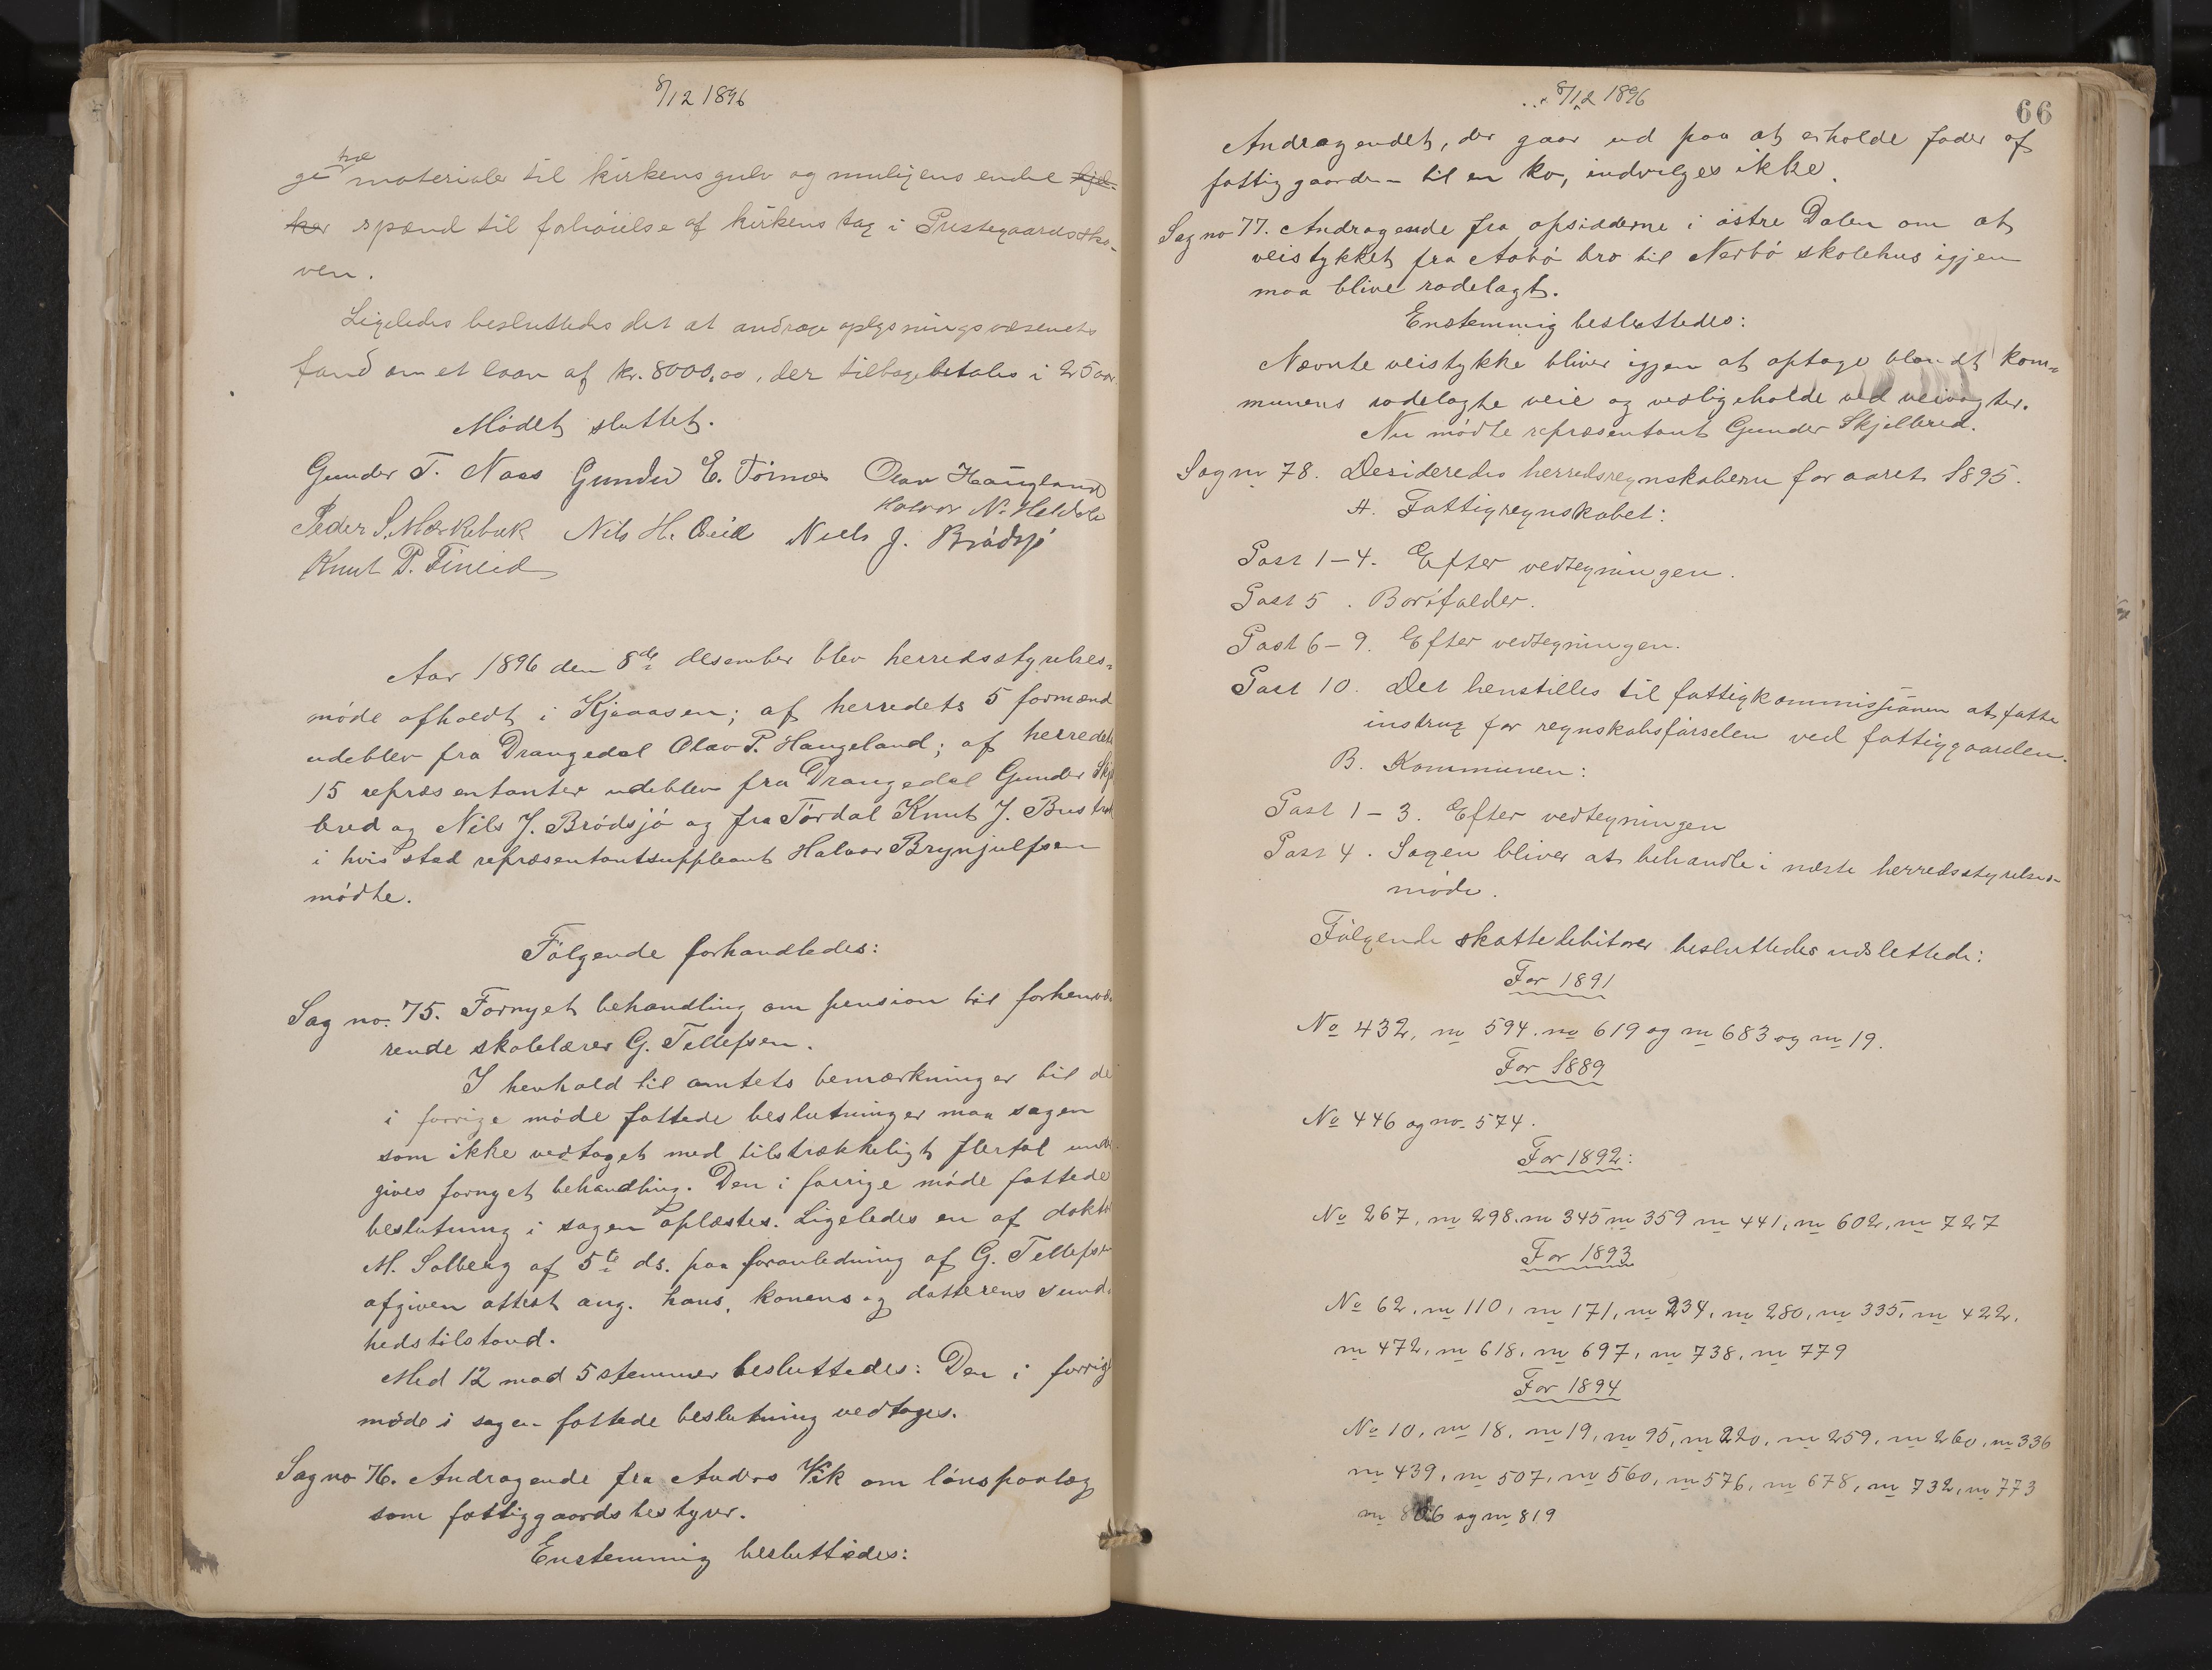 8/12 1896
træ
ge materialer til kirkens gulv og muligens endel
spænd til forhøielse af kirkens tag i Prestegaardssko-
ven.
Ligeledes besluttedes det at andrage oplysningsvæsenets
fond om et laan af kr. 8000,00, der tilbagebetales i 25 aar.
Mødet sluttet.
Gunder T. Naas Gunder E. Tørnes Olav Haugland
Halvor N. Heldøle
Peder S. Mærkebæk Nils H. Eeid Niels J. Brødsjø
Knut P. Fineid
Aar 1896 den 8de desember blev herredsstyrelses-
møde afholdt i Kjøaasen; af herredets 5 formænd
udeblev fra Drangedal Olav P. Haugeland; af herredets
15 repræsentanter udeblev fra Drangedal Gunder Skj
bred og Nils J. Brødsjø og fra Tørdal Knut J. Bustrak
i hvis sted repræsentantsuppleant Halvor Brynjulfsen
mødte.
Følgende forhandledes:
Sag no. 75. Fornyet behandling om pension til forhenvæ-
rende skolelærer G. Tellefsen.
I henhold til amtets bemærkninger til de
i forrige møde fattede beslutninger maa sagen
som ikke vedtaget med tilstrækkeligt flertal under
gives fornyet behandling. Den i forrige møde fattede
beslutning i sagen oplæstes. Ligeledes en af doktor
M. Solberg af 5te ds. paa foranledning af G. Tellefsen
afgiven attest ang. hans, konens og datterens sund-
hedstilstand.
Med 12 mod 5 stemmer besluttedes: Den i forrige
møde i sagen fattede beslutning vedtages.
Sag no 76. Andragende fra Anders Vik om lønspaalæg
som fattiggaardsbestyrer.
Enstemmig besluttedes:
8/12 1896
66
Andragendet, der gaar ud paa at erholde foder af
fattiggaarden til en ko, indvilges ikke.
Sag no 77. Andragende fra opsidderne i østre Dalen om at
veistykket fra Aabø bro til Nerbø skolehus igjen
maa blive rodelagt.
Enstemmig besluttedes:
Nævnte veistykke bliver igjen at optage blandt kom-
munens rodelagte veie og vedligeholde ved veivogter.
Nu mødte repræsentant Gunder Skjelbred.
Sag no 78. Desideredes herredsregnskaberne for aaret 1895.
A. Fattigregnskabet:
Post 1-4. Efter vedtegningen.
Post 5. Bortfalder.
Post 6-9. Efter vedtegningen.
Post 10. Det henstilles til fattigkommissionen at fatte
instrux for regnskabsførselen ved fattiggaarden.
B. Kommunen:
Post 1-3. Efter vedtegningen
Post 4. Sagen bliver at behandle i næste herredsstyrelses-
møde.
Følgende skattedebitorer besluttedes udslettede:
For 1891
No 432, no 594. no 619 og no 683 og no 19.
For 1889
No 446 og no. 574.
For 1892:
No 267, no 298. no 345 no 359 no 441, no 602, no 727
For 1893
No 62, no 110, no 171, no 234, no 280, no 335, no 422,
no 472, no 618, no 697, no 738, no 779
For 1894
No 10, no 18, no 19, no 95, no 220, no 259, no 260, no 336
no 439, no 507, no 560, no 576, no 678, no 732, no 773
no 806 og no 819